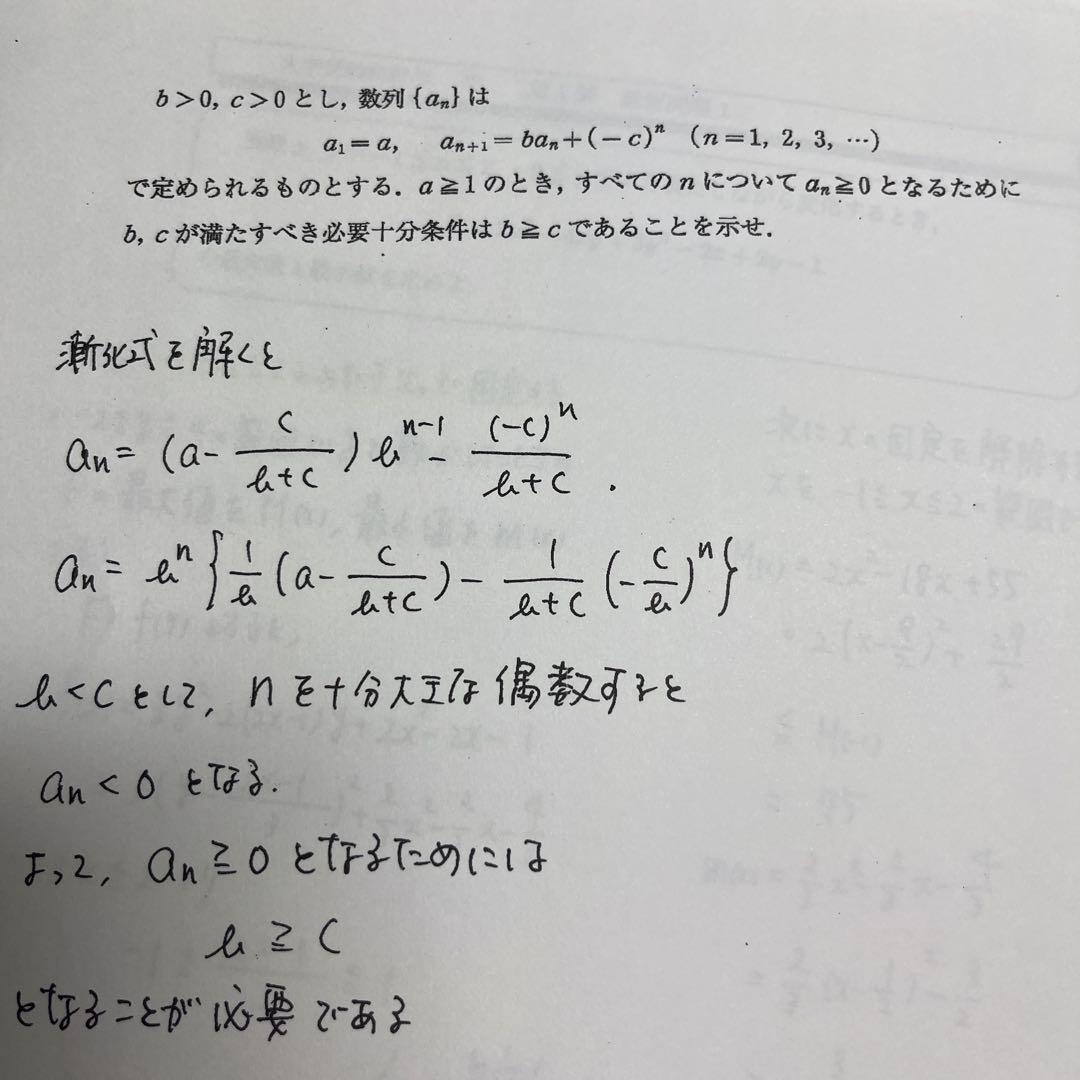 b>0, c>0とし, 数列{aₙ}は
a₁=a, aₙ₊₁=baₙ+(-c)ⁿ (n=1, 2, 3, …)
で定められるものとする. a≧1のとき, すべてのnについてaₙ≧0となるために
b, cが満たすべき必要十分条件はb≧cであることを示せ.
漸化式を解くと
aₙ = (a - c/(b+c)) bⁿ⁻¹ - (-c)ⁿ/(b+c).
aₙ = bⁿ{1/b (a - c/(b+c)) - 1/(b+c) (-c/b)ⁿ}
b<cとして, nを十分大きな偶数すると
aₙ<0となる.
よって, aₙ≧0となるためには
b≧c
となることが必要である